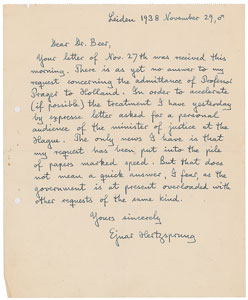 Leiden 1938 November 29,0
Dear Dr. Beer,
Your letter of Nov. 27th was received this
morning. There is as yet no answer to my
request concerning the admittance of Professor
Prager to Holland. In order to accelerate
(if possible) the treatment I have yesterday
by expresse letter asked for a personal
audience of the minister of justice at the
Hague. The only news I have is that
my request has been put into the pile
of papers marked speed. But that does
not mean a quick answer, I fear, as the
government is at present overloaded with
other requests of the same kind.
Yours sincerely
Ejnar Hertzsprung